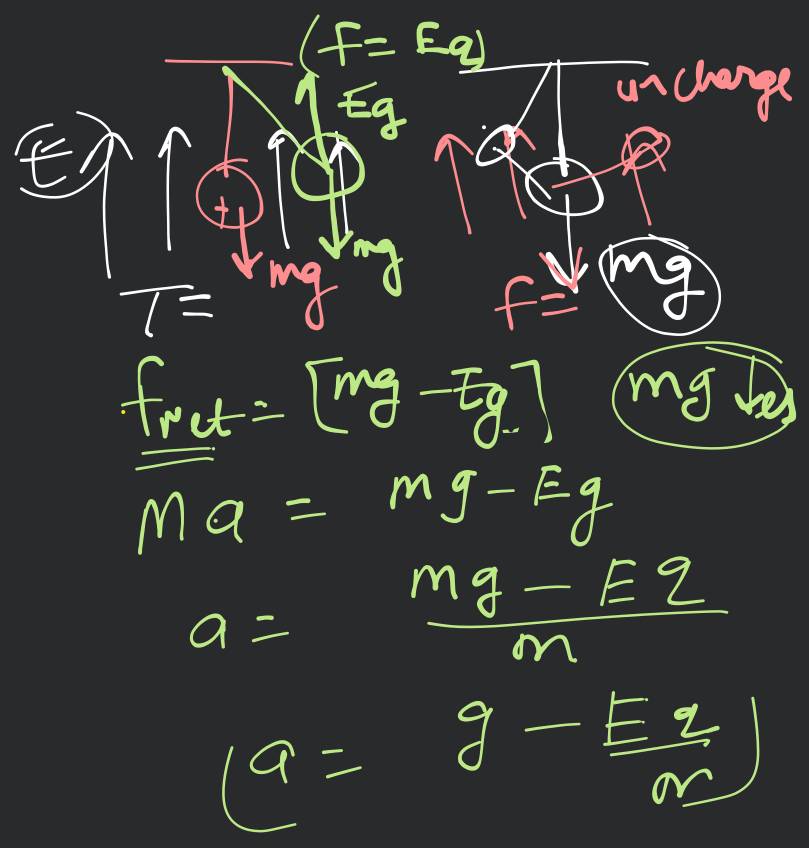 (F = Eq)
Eq
uncharge
E
+
mg
mg
T =
F =
mg
Fnet = [mg - Eq]
mg ↓es
Ma = mg - Eq
a = mg - Eq / m
(a = g - Eq / m)